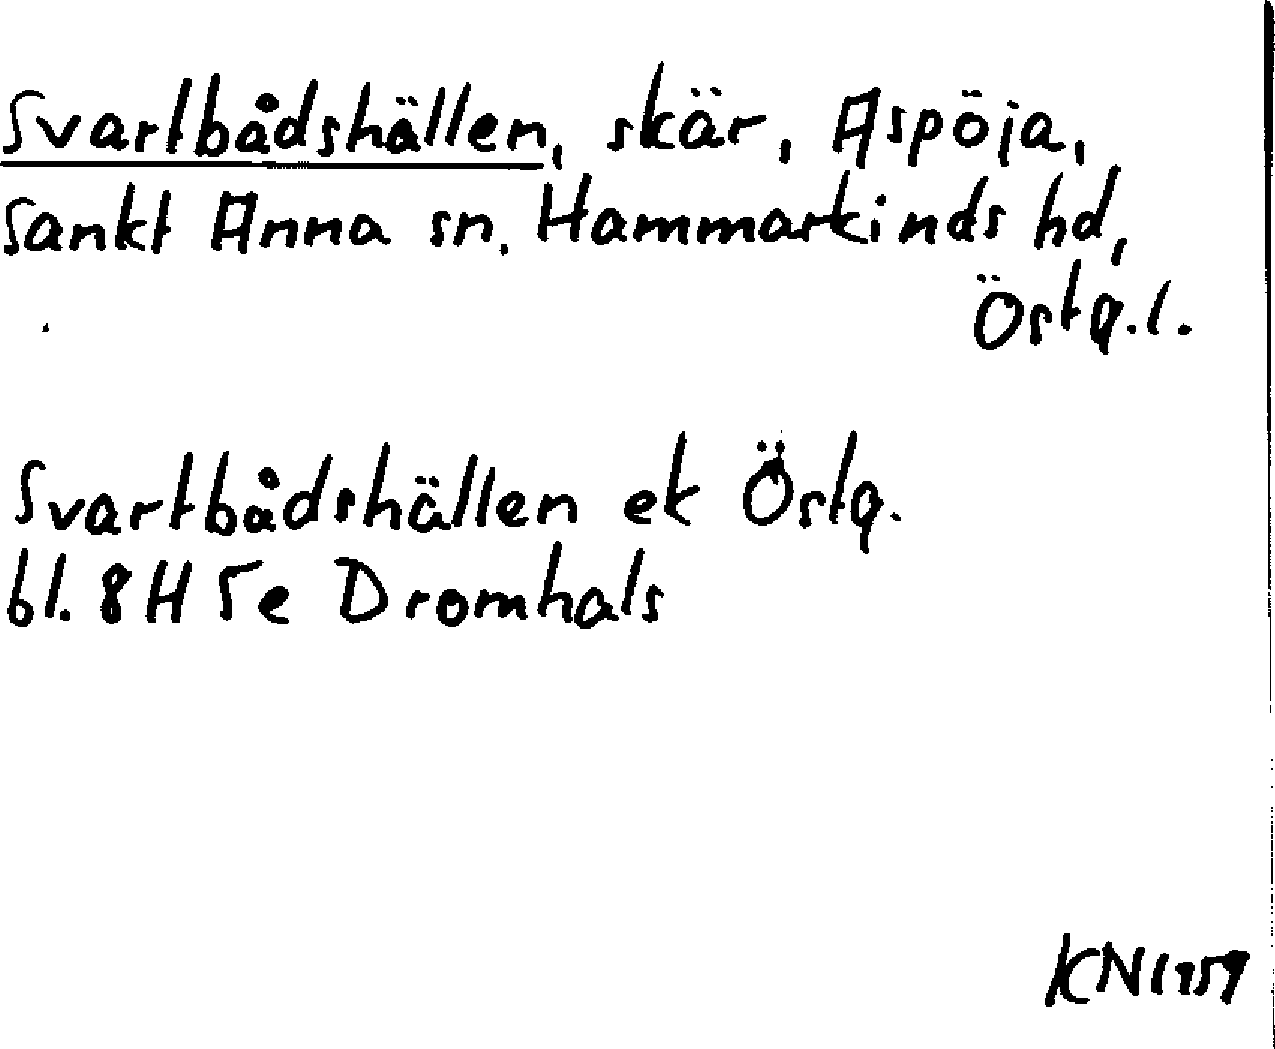 Svartbådshällen, skär, Aspöja,
Sankt Anna sn. Hammarkinds hd,
Östg.l.
Svartbådshällen ek Östg.
bl. 8H 5e Dromhals
KN 1959